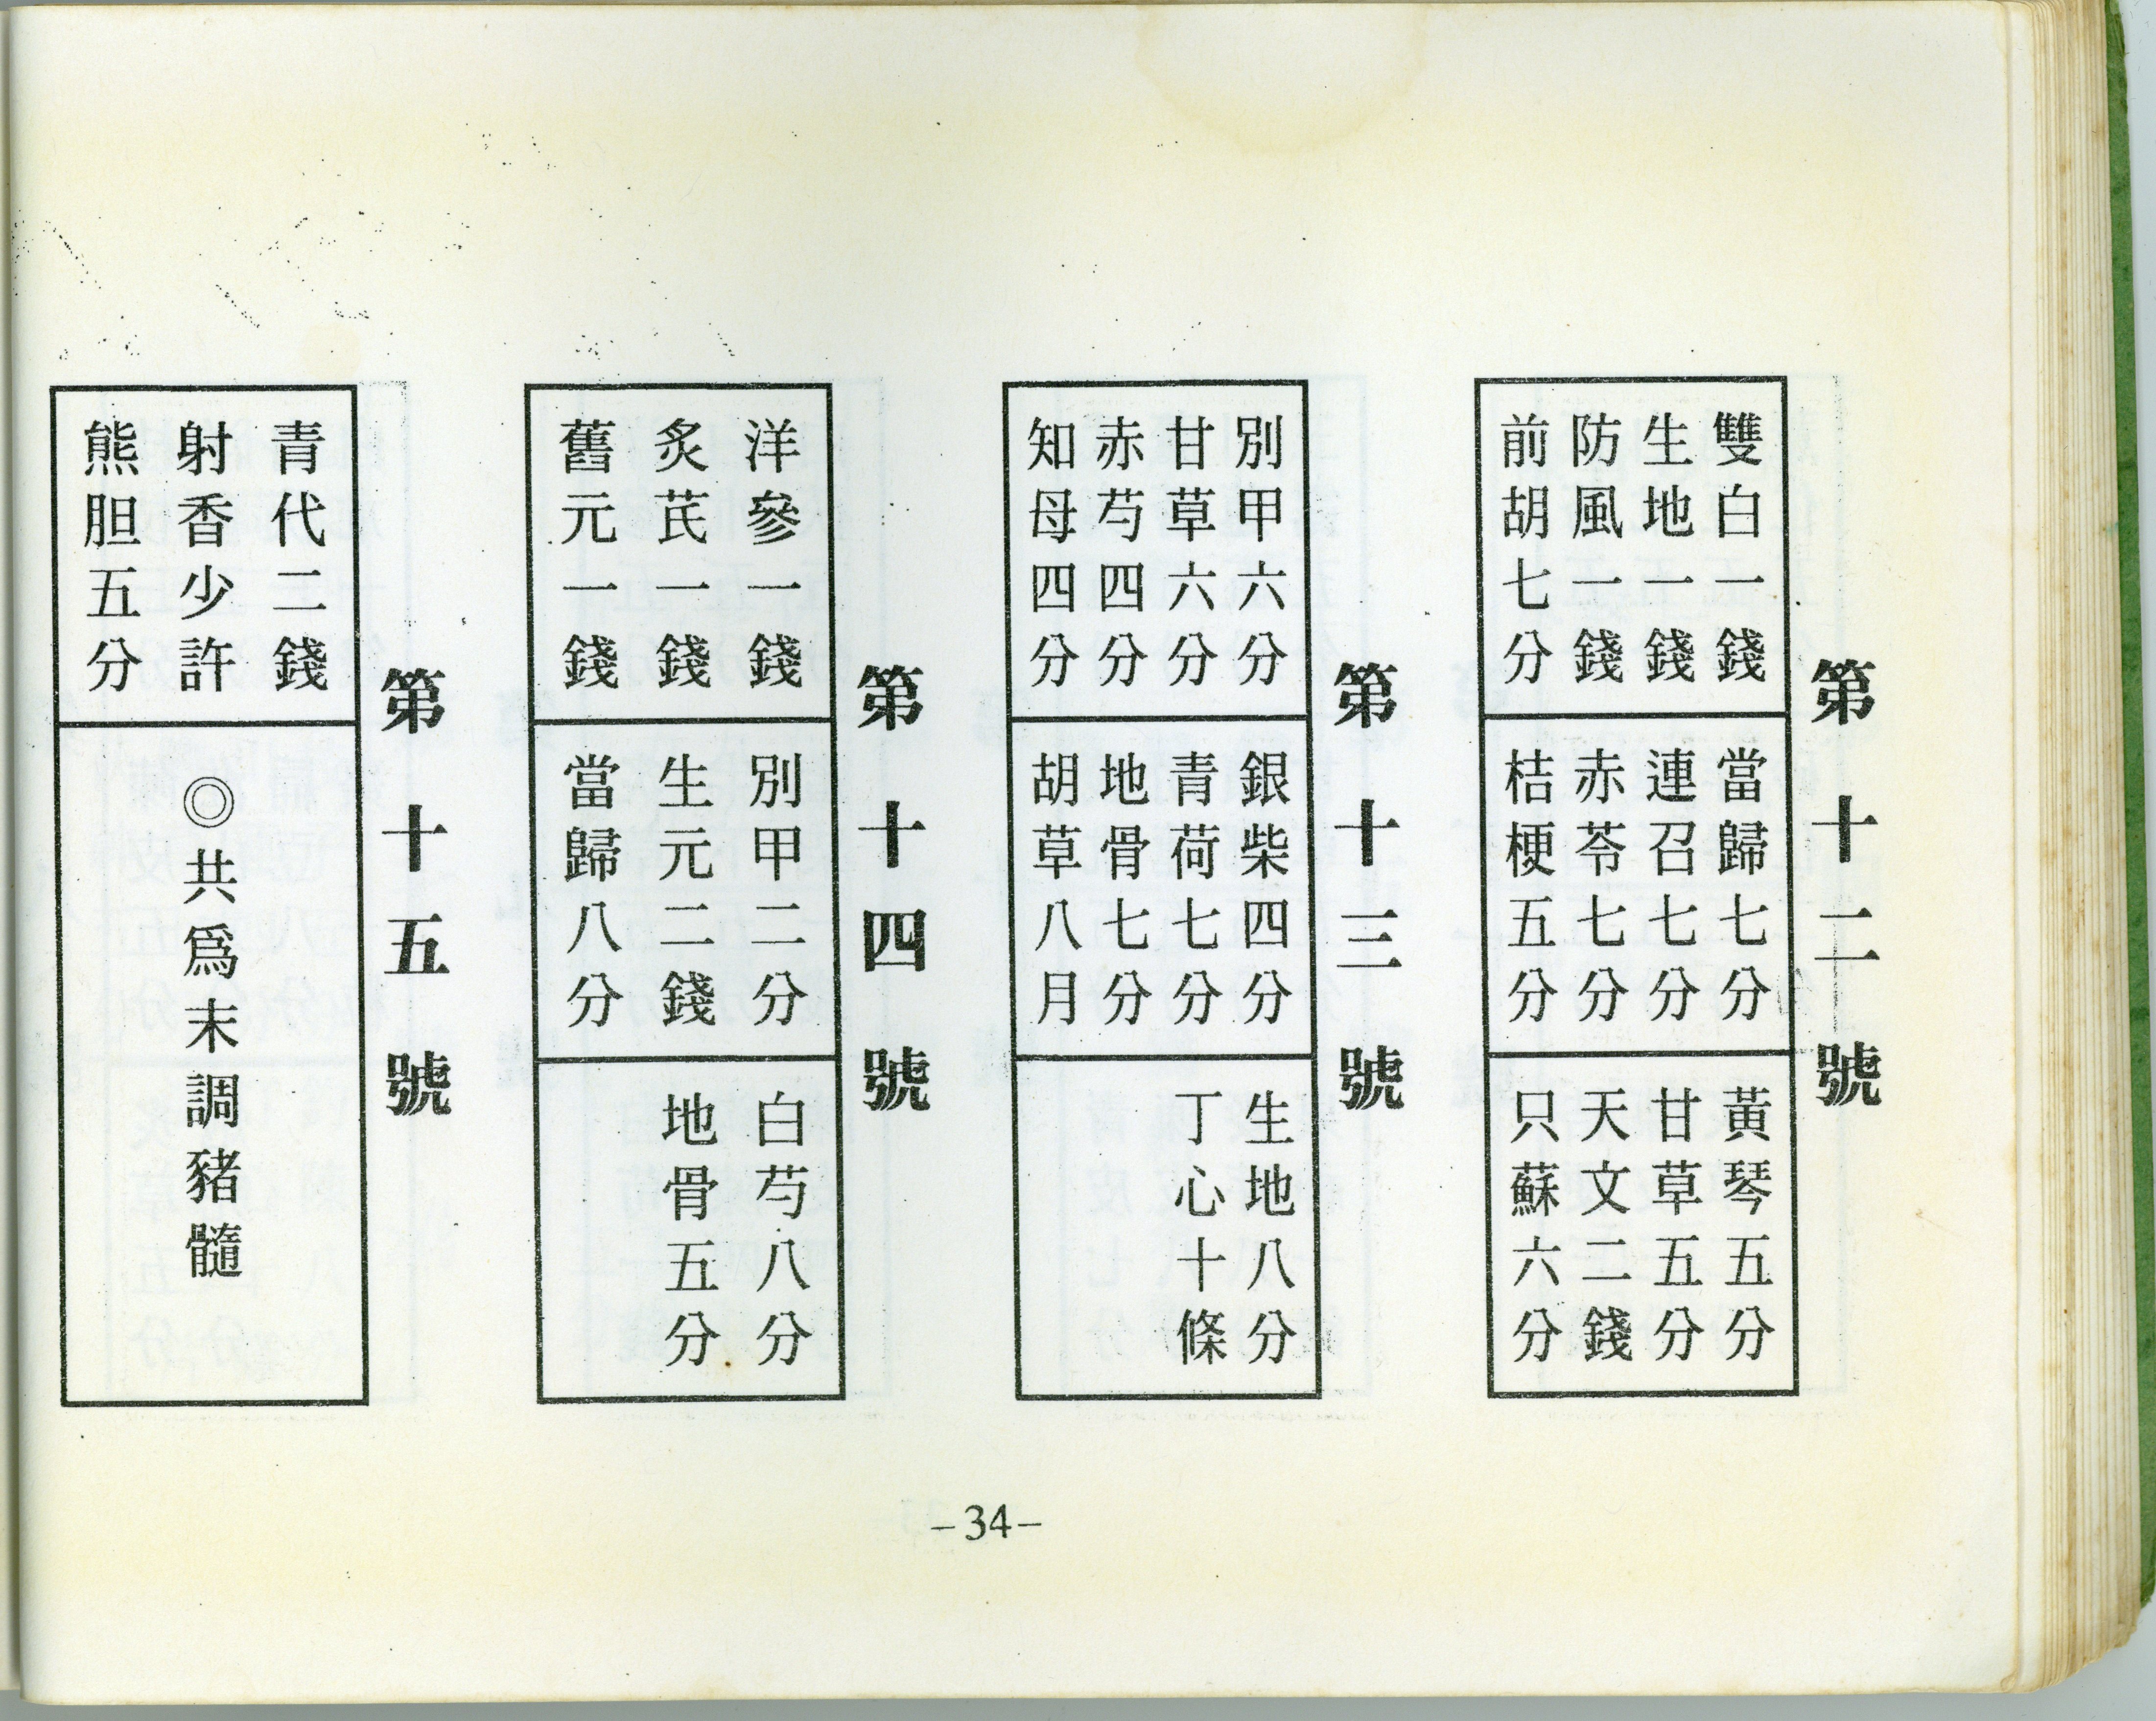 第十二號
雙白一錢
生地一錢
防風一錢
前胡七分
當歸七分
連召七分
赤苓七分
桔梗五分
黃琴五分
甘草五分
天文二錢
只蘇六分
第十三號
別甲六分
甘草六分
赤芍四分
知母四分
銀柴四分
青荷七分
地骨七分
胡草八月
生地八分
丁心十條
第十四號
洋參一錢
炙芪一錢
舊元一錢
別甲二分
生元二錢
當歸八分
白芍八分
地骨五分
第十五號
青代二錢
射香少許
熊胆五分
◎共爲末調豬髓
-34-